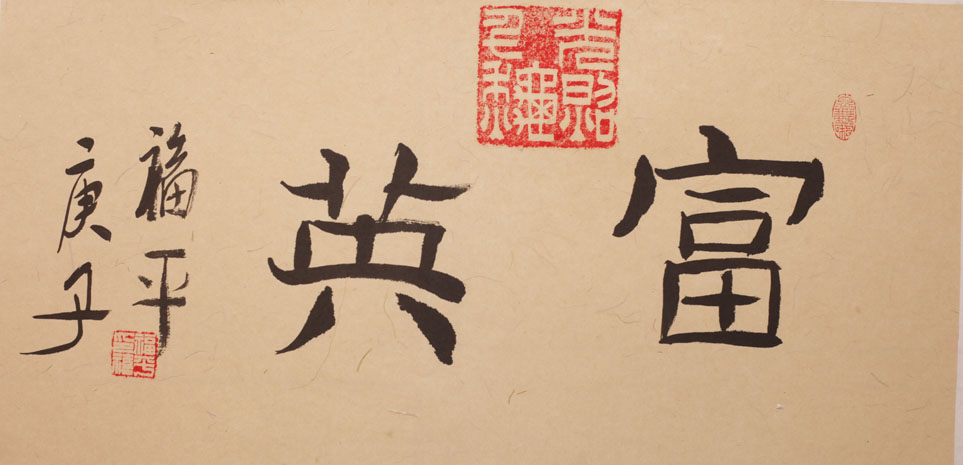 富英
福平
庚子